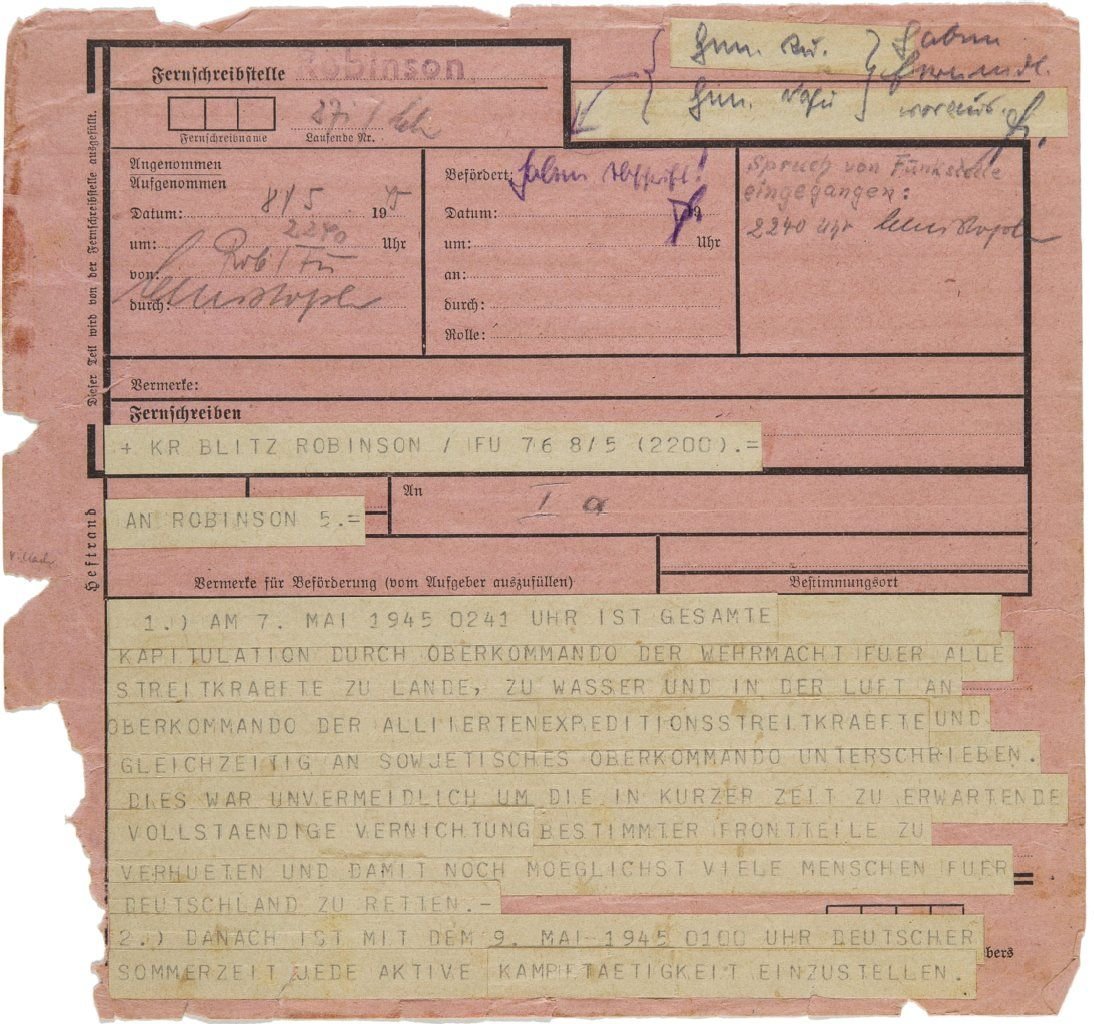 Fernschreibstelle Robinson
Fernschreibname
Laufende Nr.
Dieser Teil wird von der Fernschreibstelle ausgefüllt.
Angenommen
Aufgenommen
Datum: 8/5 1945
um: 2240 Uhr
von: Rob/Fu
durch:
Befördert:
Datum: 19
um: Uhr
an:
durch:
Rolle:
Spruch von Funkstelle
eingegangen:
2240 Uhr
Vermerke:
Fernschreiben
+ KR BLITZ ROBINSON / FU 76 8/5 (2200).=
AN ROBINSON 5.=
An
I a
Heftrand
Vermerke für Beförderung (vom Aufgeber auszufüllen)
Bestimmungsort
1.) AM 7. MAI 1945 0241 UHR IST GESAMTE
KAPITULATION DURCH OBERKOMMANDO DER WEHRMACHT FUER ALLE
STREITKRAEFTE ZU LANDE, ZU WASSER UND IN DER LUFT AN
OBERKOMMANDO DER ALLIIERTENEXPEDITIONSSTREITKRAEFTE UND
GLEICHZEITIG AN SOWJETISCHES OBERKOMMANDO UNTERSCHRIEBEN.
DIES WAR UNVERMEIDLICH UM DIE IN KURZER ZEIT ZU ERWARTENDE
VOLLSTAENDIGE VERNICHTUNG BESTIMMTER FRONTTEILE ZU
VERHUETEN UND DAMIT NOCH MOEGLICHST VIELE MENSCHEN FUER
DEUTSCHLAND ZU RETTEN.-
2.) DANACH IST MIT DEM 9. MAI 1945 0100 UHR DEUTSCHER
SOMMERZEIT JEDE AKTIVE KAMPFTAETIGKEIT EINZUSTELLEN.
bers